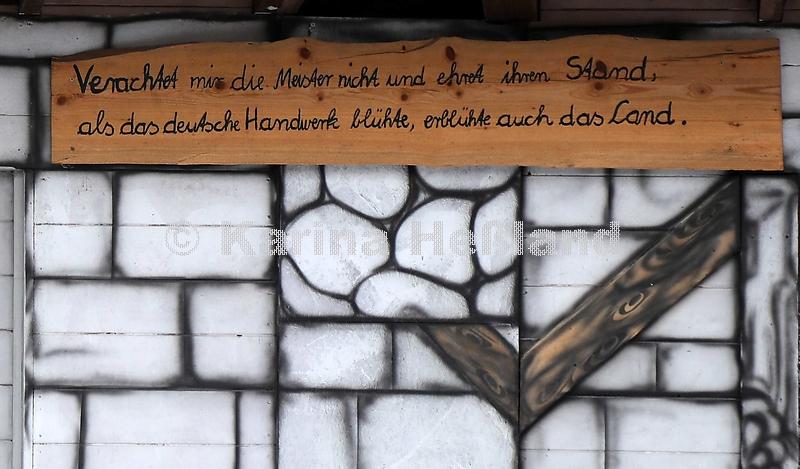 Verachtet mir die Meister nicht und ehret ihren Stand,
als das deutsche Handwerk blühte, erblühte auch das Land.
© Karina Heßland